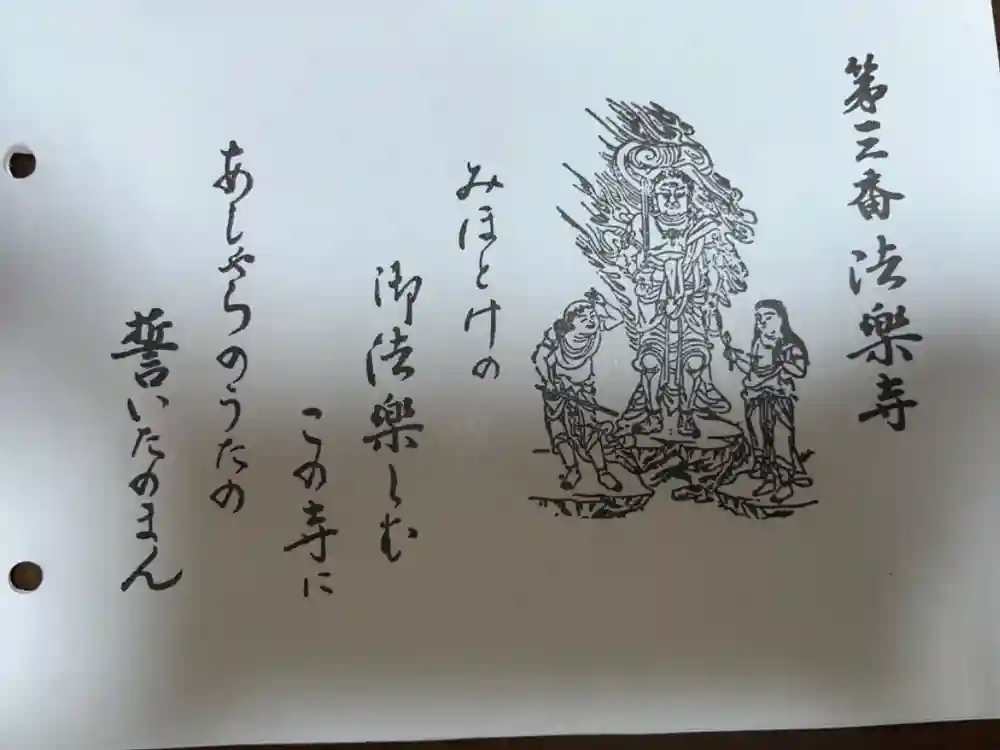 第三番法樂寺
みほとけの
御法樂しむ
この寺に
あしやらのうたの
誓いたのまん